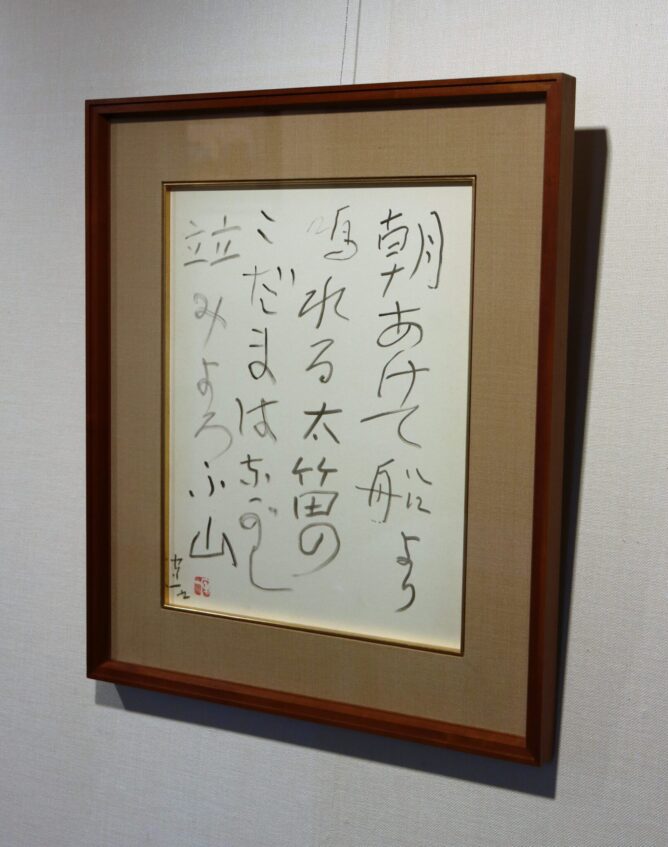 朝あけて船より
鳴れる太笛の
こだまはながし
竝みよろふ山